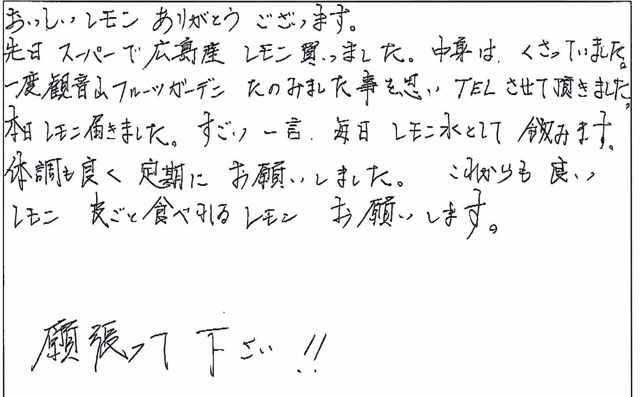 おいしいレモン ありがとう ございます。
先日 スーパーで広島産 レモン買いました。中身は、くさっていました。
一度観音山フルーツガーデン たのみました事を思い TELさせて頂きました。
本日レモン届きました。すごい 一言、毎日 レモン水として 飲みます。
体調も良く 定期に お願いしました。 これからも 良い
レモン 皮ごと食べれるレモン お願いします。
願張って 下さい!!